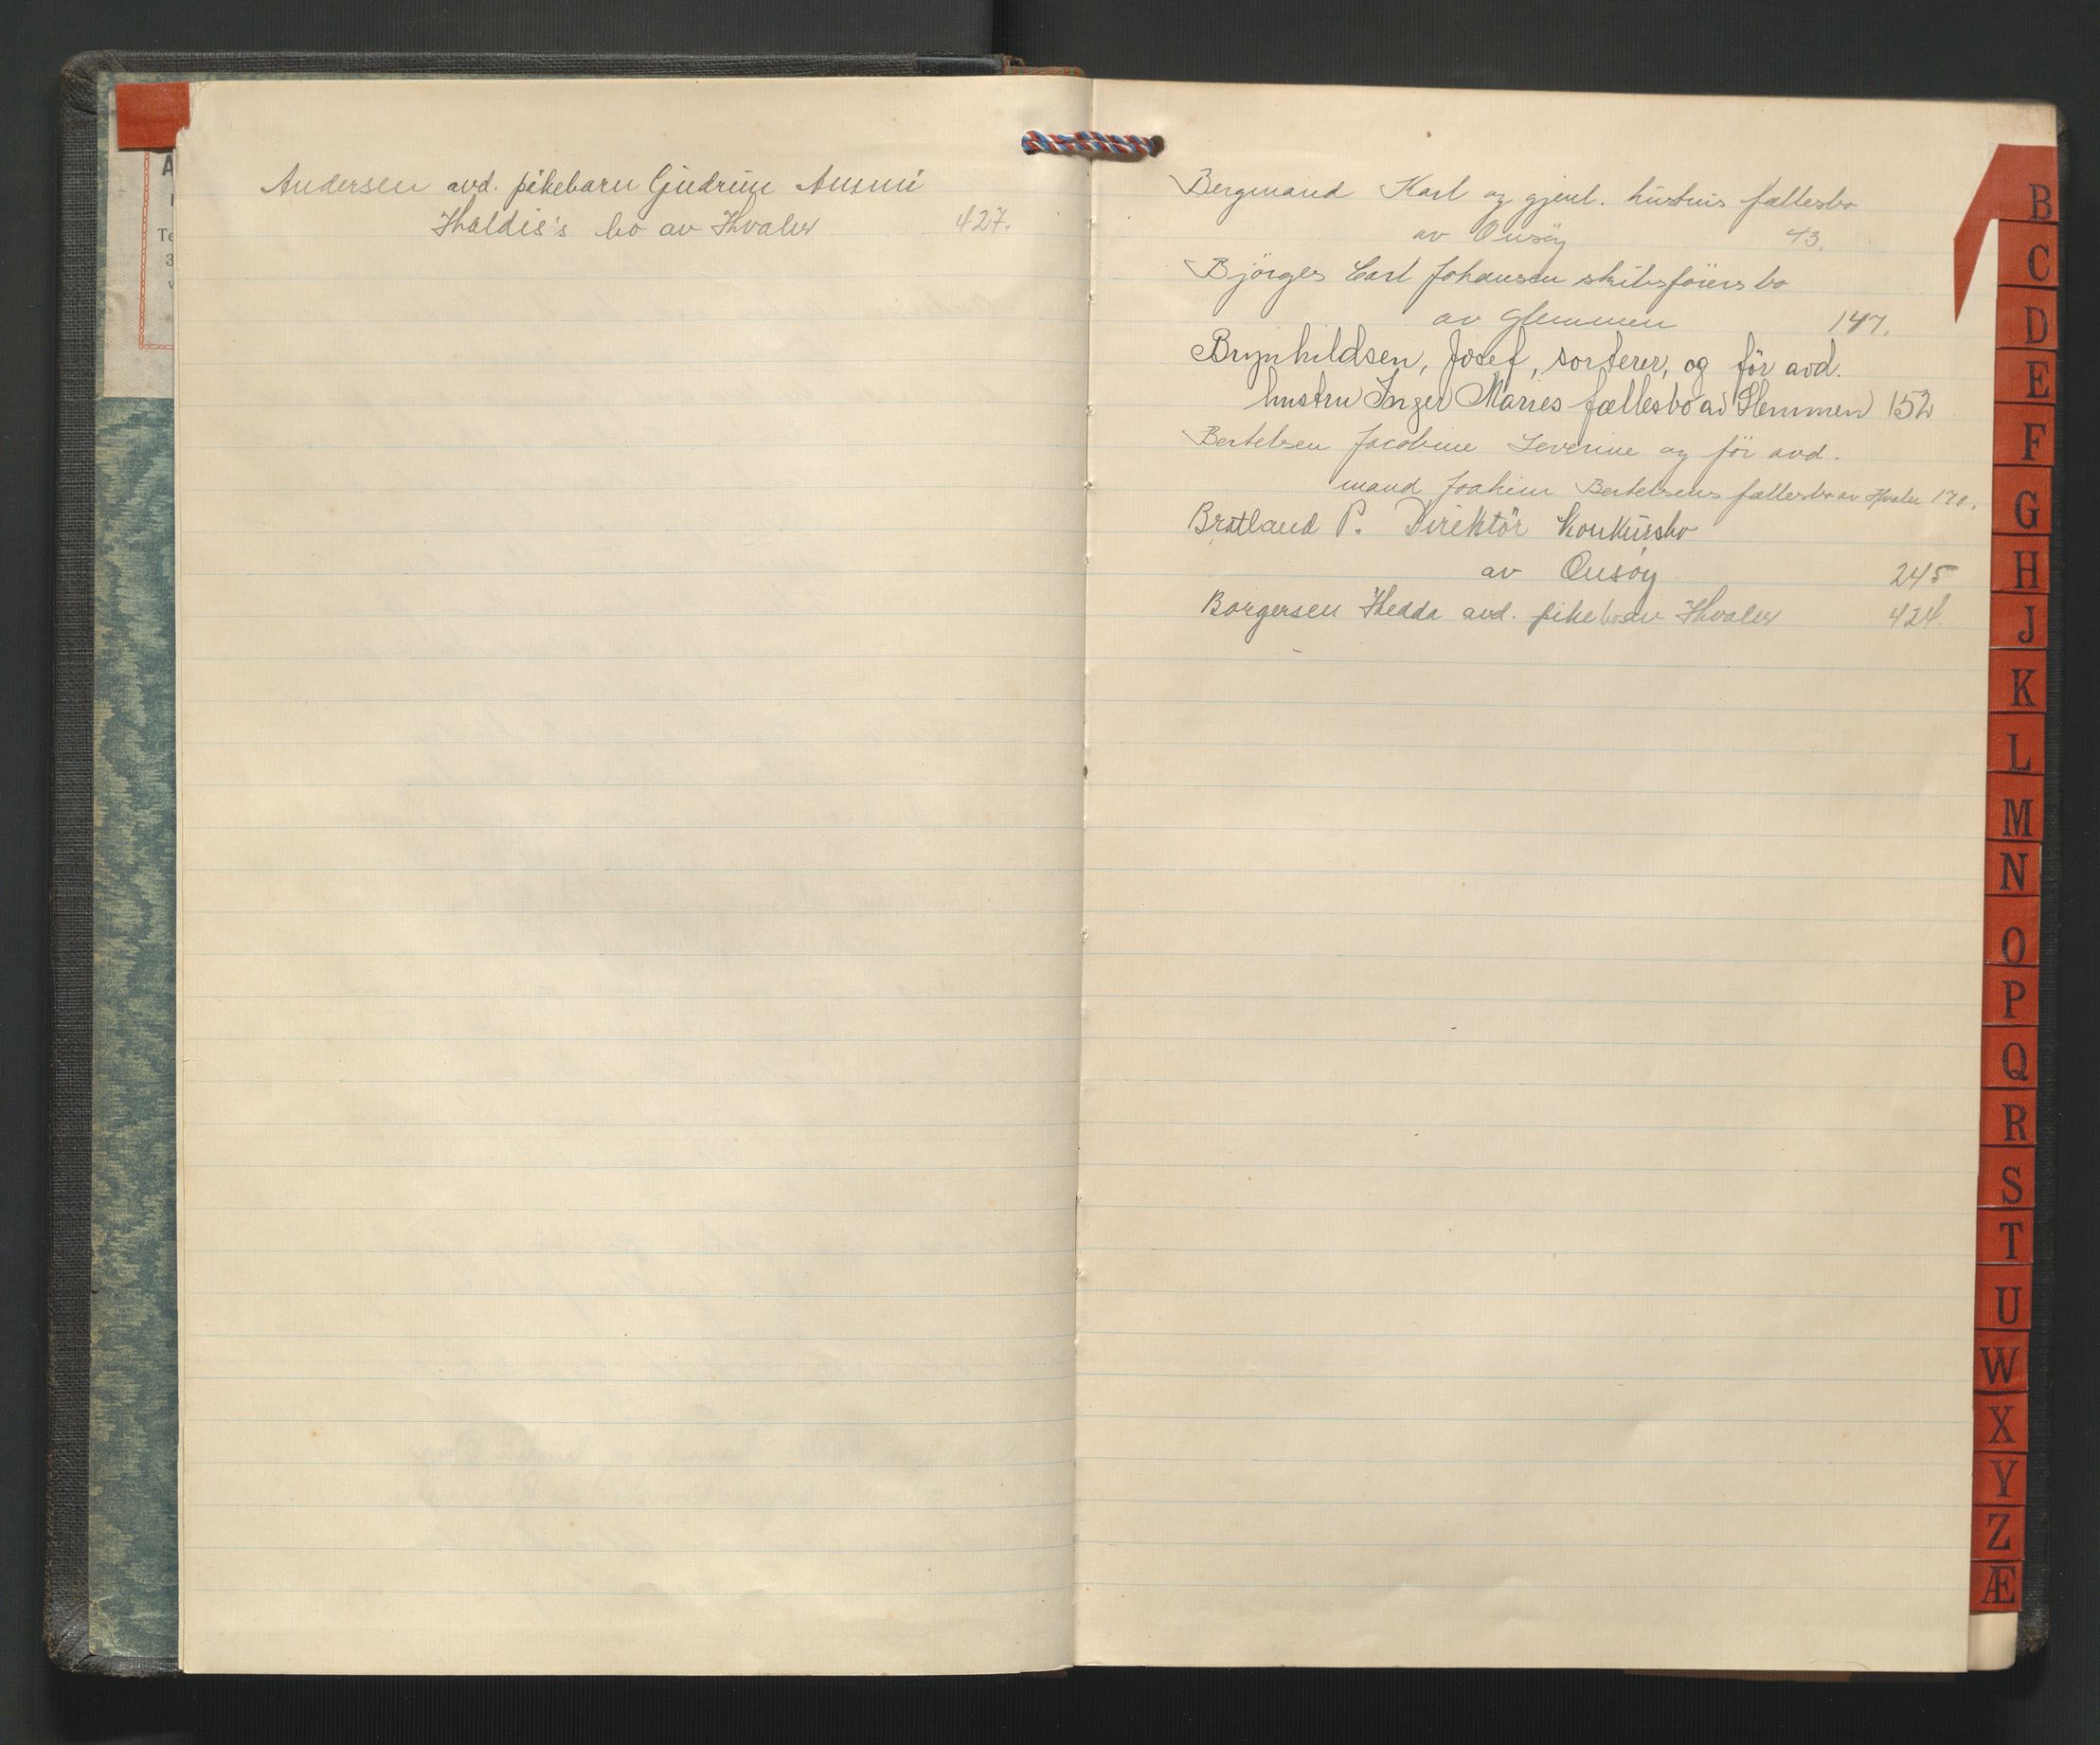 Andersen avd. pikebarn Gudrun Ammi
Haldis's bo av Hvaler 427.
Bergmand Karl og gjenl. hustrus fællesbo
av Onsöy 43.
Björges Carl Johansen skibsförers bo
av Glemmen 147.
Brynhildsen, Josef, sorterer, og för avd.
hustru Inger Maries fællesbo av Glemmen 152
Bertelsen Jacobine Severine og för avd.
mand Joakim Bertelsens fællesbo av Hvaler 170.
Bratland P. Direktör Konkursbo
av Onsöy 245
Borgersen Hedda avd. pike bo av Hvaler 424.
A
Te
3
B
C
D
E
F
G
H
J
K
L
M
N
O
P
Q
R
S
T
U
W
X
Y
Z
Æ